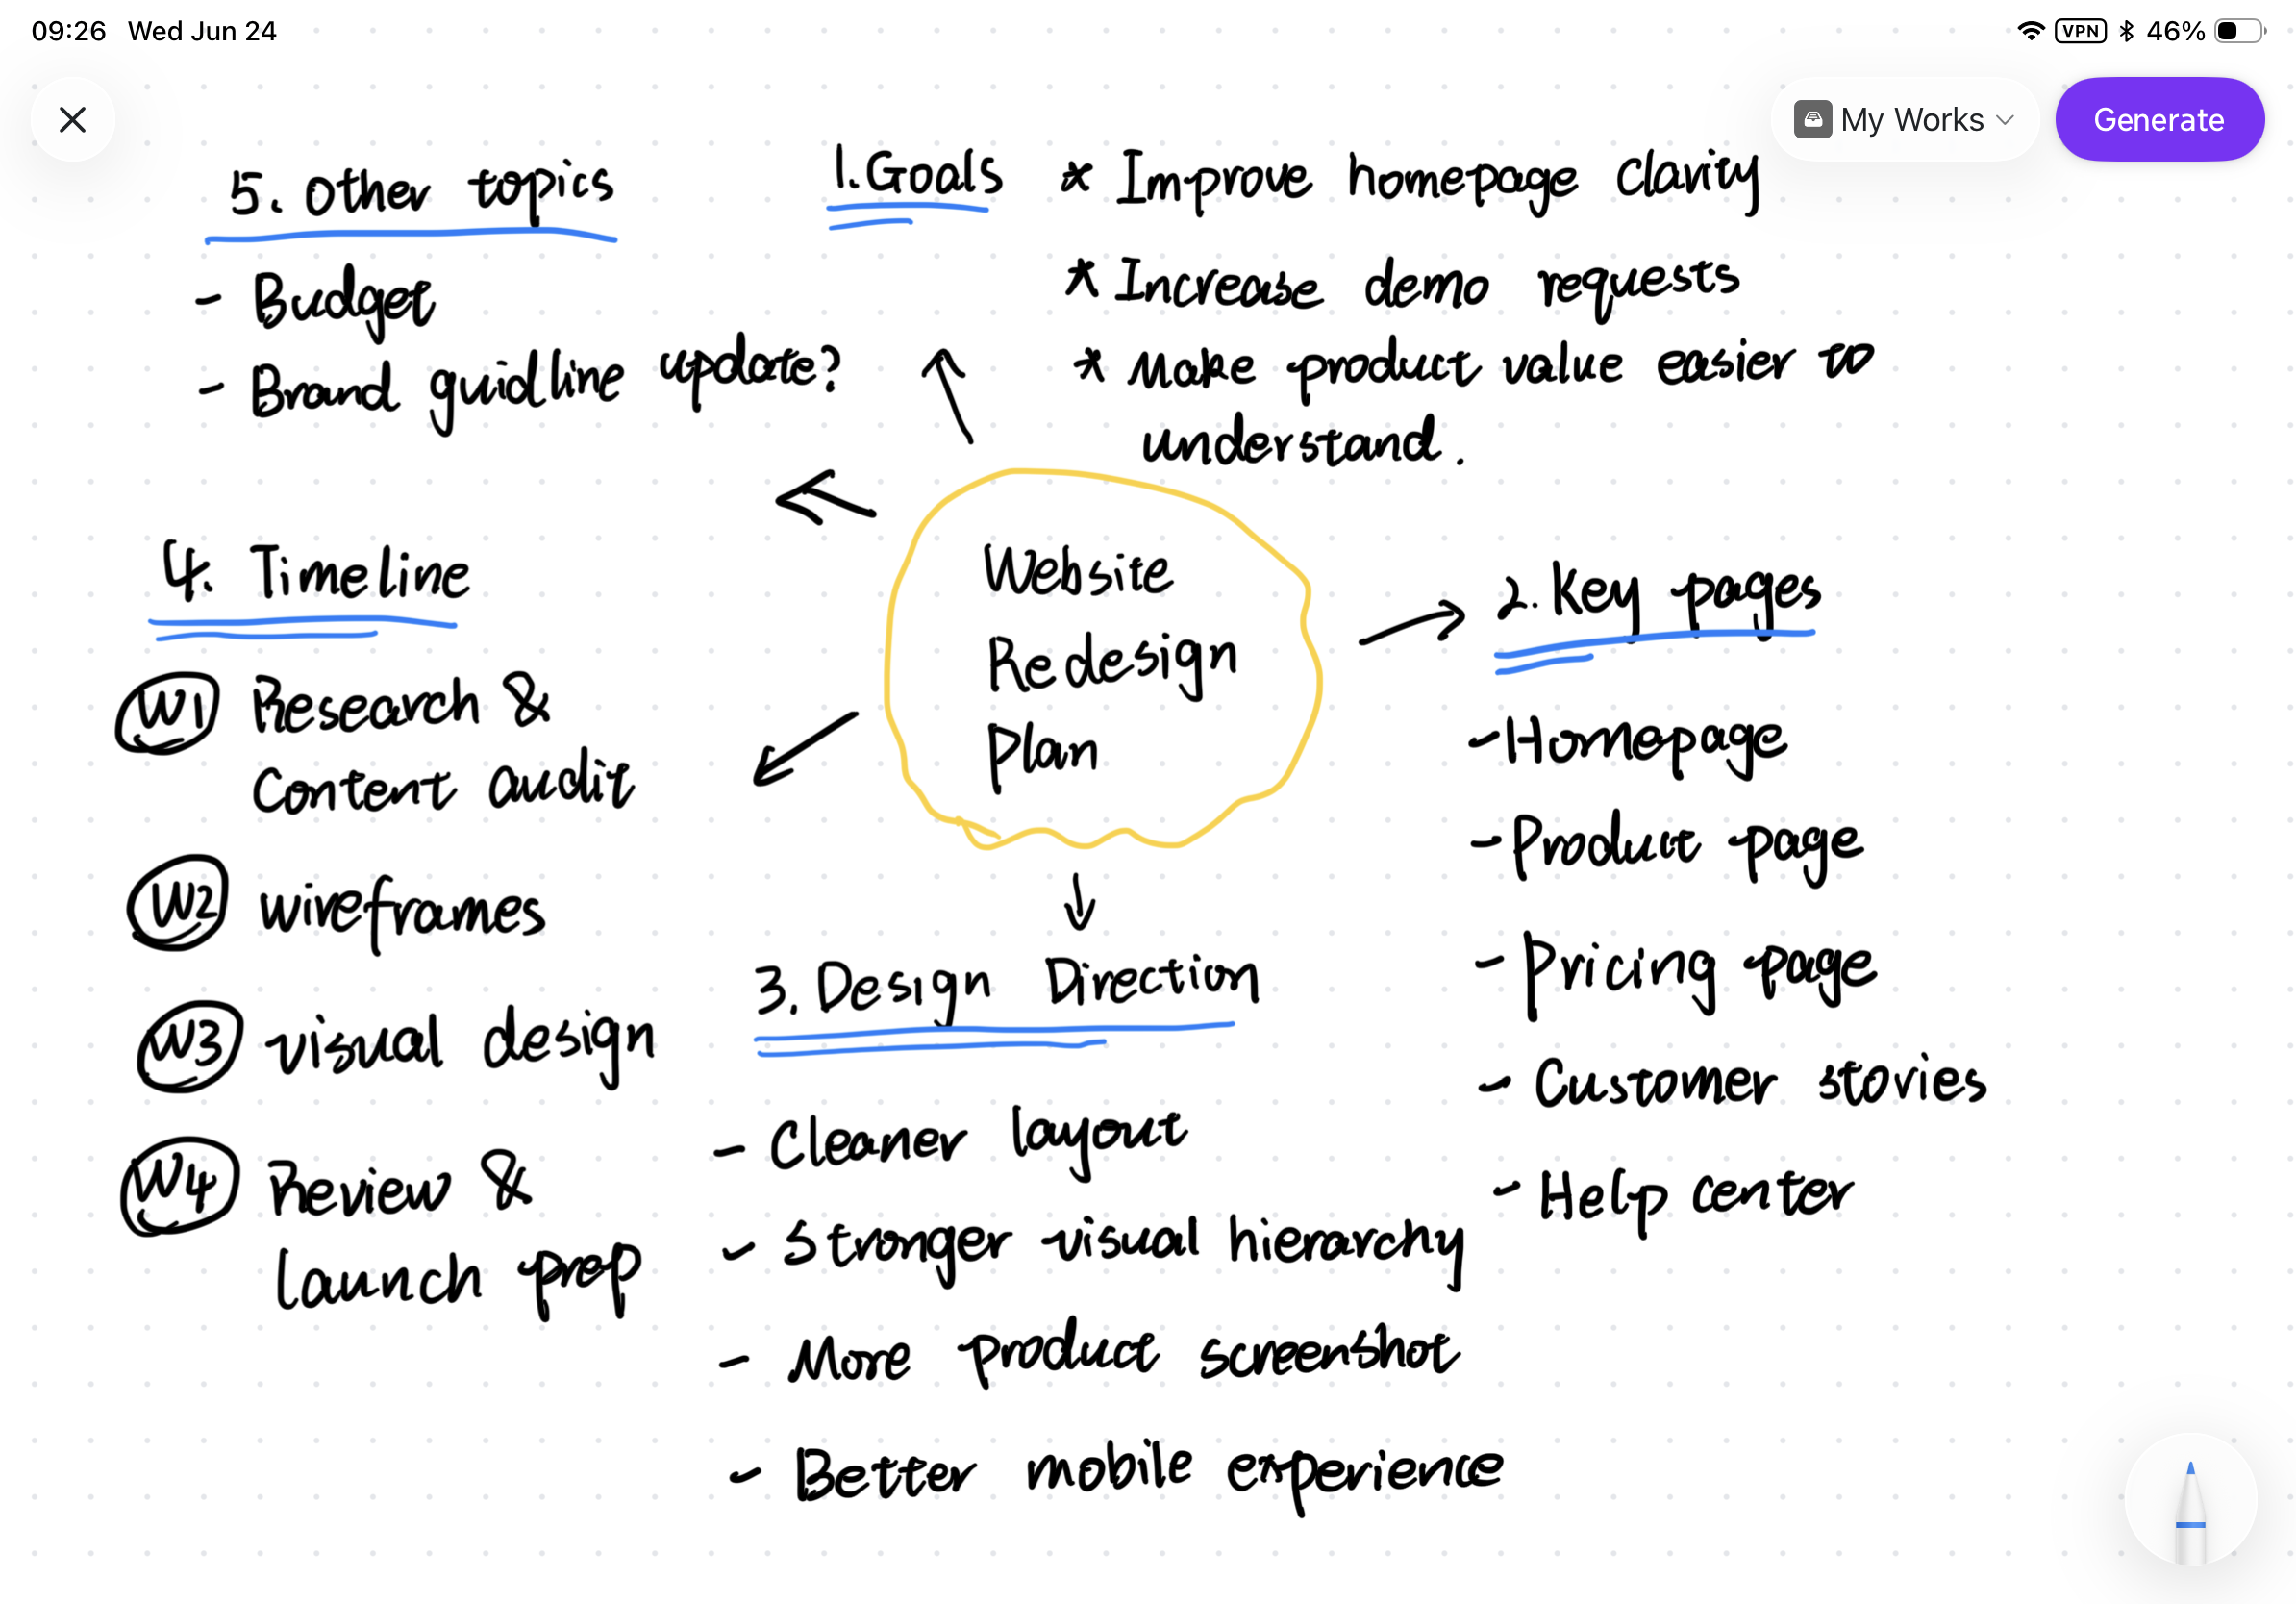 09:26 Wed Jun 24
VPN 46%
My Works
Generate
5. Other topics
- Budget
- Brand guidline update?
1. Goals
* Improve homepage clarity
* Increase demo requests
* Make product value easier to
understand.
Website
Redesign
Plan
2. Key pages
- Homepage
- Product page
- Pricing page
- Customer stories
- Help center
3. Design Direction
- Cleaner layout
- Stronger visual hierarchy
- More product screenshot
- Better mobile experience
4. Timeline
W1 Research &
Content audit
W2 wireframes
W3 visual design
W4 Review &
launch prep